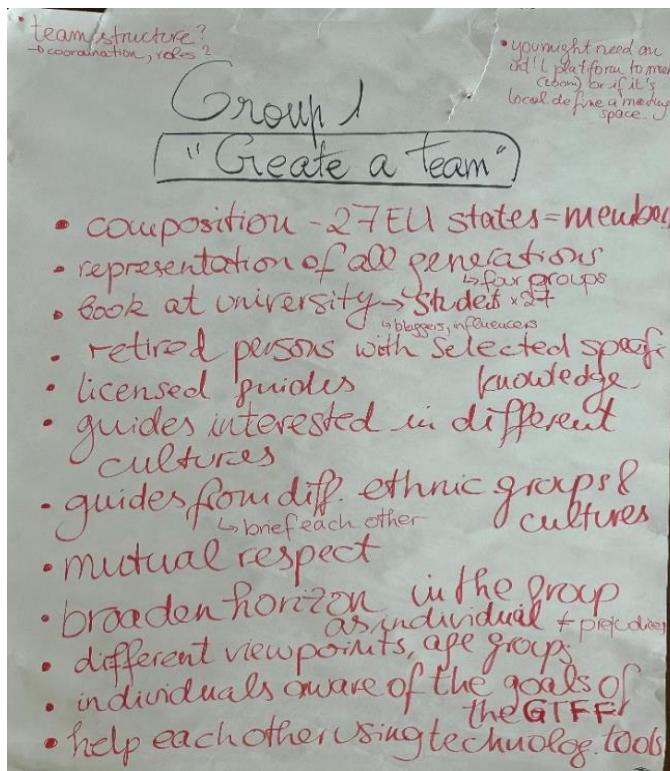 • team structure?
→ coordination, roles?
• you might need an
int'l platform to meet
(zoom) or if it's
local define a meeting
space.
Group 1
"Create a team"
• composition - 27 EU states = member
• representation of all generations
↳ four groups
• look at university → studets × 27
↳ bloggers, influencers
• retired persons with selected specific
knowledge
• licensed guides
• guides interested in different
cultures
• guides from diff. ethnic groups &
cultures
↳ brief each other
• mutual respect
• broaden horizon in the group
as individual + prejudices
• different viewpoints, age groups
• individuals aware of the goals of
the GTFF
• help each other using technolog. tools